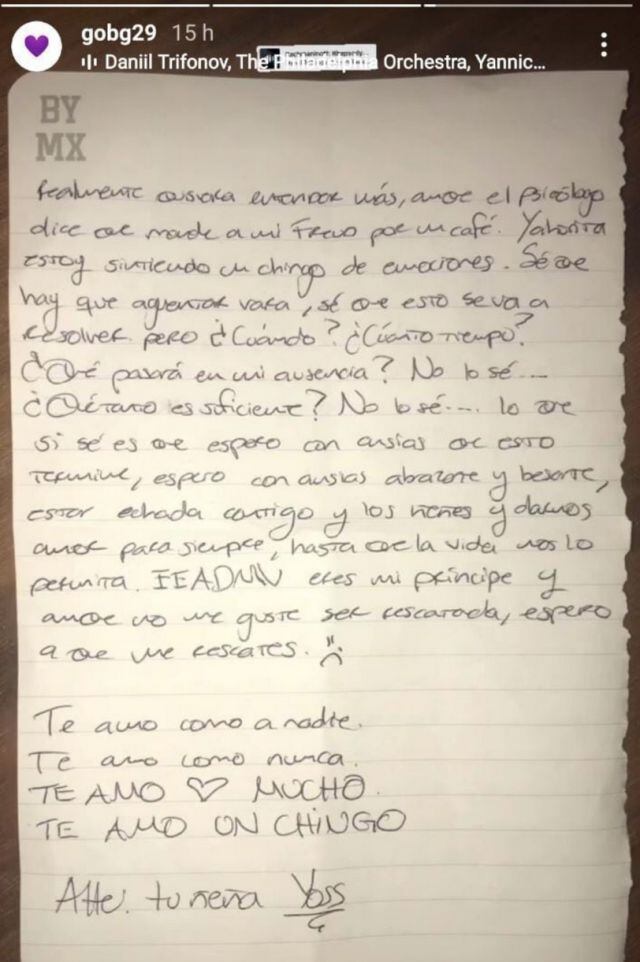 gobg29 15 h
Daniil Trifonov, The Philadelphia Orchestra, Yannic...
BY
MX
Realmente quisiera entender más, aunque el psicólogo
dice que mande a mi Freud por un café. Yahorita
estoy sintiendo un chingo de emociones. Sé que
hay que aguantar vara, sé que esto se va a
resolver pero ¿Cuándo? ¿Cuánto tiempo?
¿Qué pasará en mi ausencia? No lo sé....
¿Qué tanto es suficiente? No lo sé.... lo que
si sé es que espero con ansias que esto
termine, espero con ansias abrazarte y besarte,
estar echada contigo y los nenes y darnos
amor para siempre, hasta que la vida nos lo
permita. eres mi príncipe y
aunque no me guste ser rescatada, espero
a que me rescates.
Te amo como a nadie.
Te amo como nunca.
TE AMO ♡ MUCHO.
TE AMO UN CHINGO
Atte. tu nena Yoss